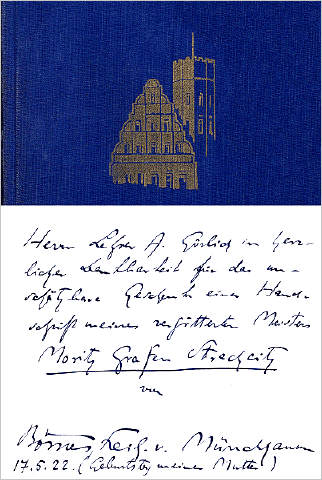 Herrn Lehrer A. Görlich in herz-
licher Dankbarkeit für das un-
schätzbare Geschenk einer Hand-
schrift meines vergötterten Meisters
Moritz Grafen Strachwitz
von
Börries, Frh. v. Münchhausen
17.5.22. (Geburtstag meiner Mutter)